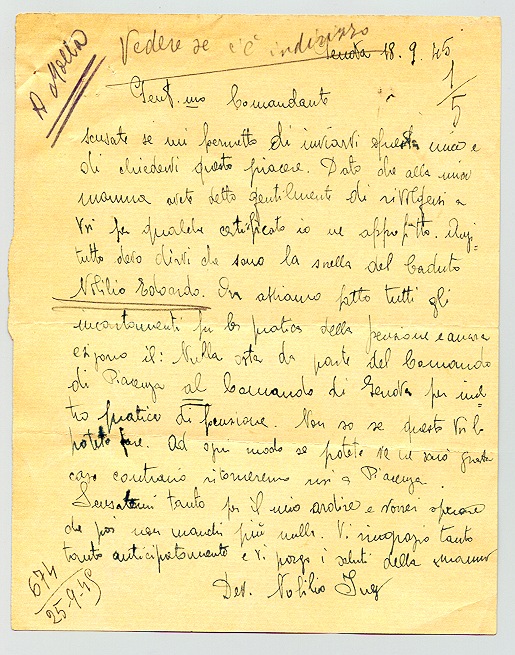 A Molla
Vedere se c'è indirizzo
Genova 18.9.45
1/5
Gent.mo Comandante
scusate se mi permetto di inviarvi questa mia e
di chiedervi questo piacere. Dato che alla mia
mamma avete detto gentilmente di rivolgersi a
Voi per qualche certificato io ne approfitto. Anzi-
tutto devo dirvi che sono la sorella del Caduto
Nobilio Edoardo. Ora abbiamo fatto tutti gli
incartamenti per la pratica della pensione e ancora
esigono il: Nulla osta da parte del Comando
di Piacenza al Comando di Genova per
pratica di pensione. Non so se questo Voi lo
potete fare. Ad ogni modo se potete ve ne sarò grata
caso contrario ritorneremo noi a Piacenza.
Scusatemi tanto per il mio ardire e vorrei sperare
che poi non manchi più nulla. Vi ringrazio tanto
tanto anticipatamente e vi porgo i saluti della mamma
Dev. Nobilio
674
25-9-45